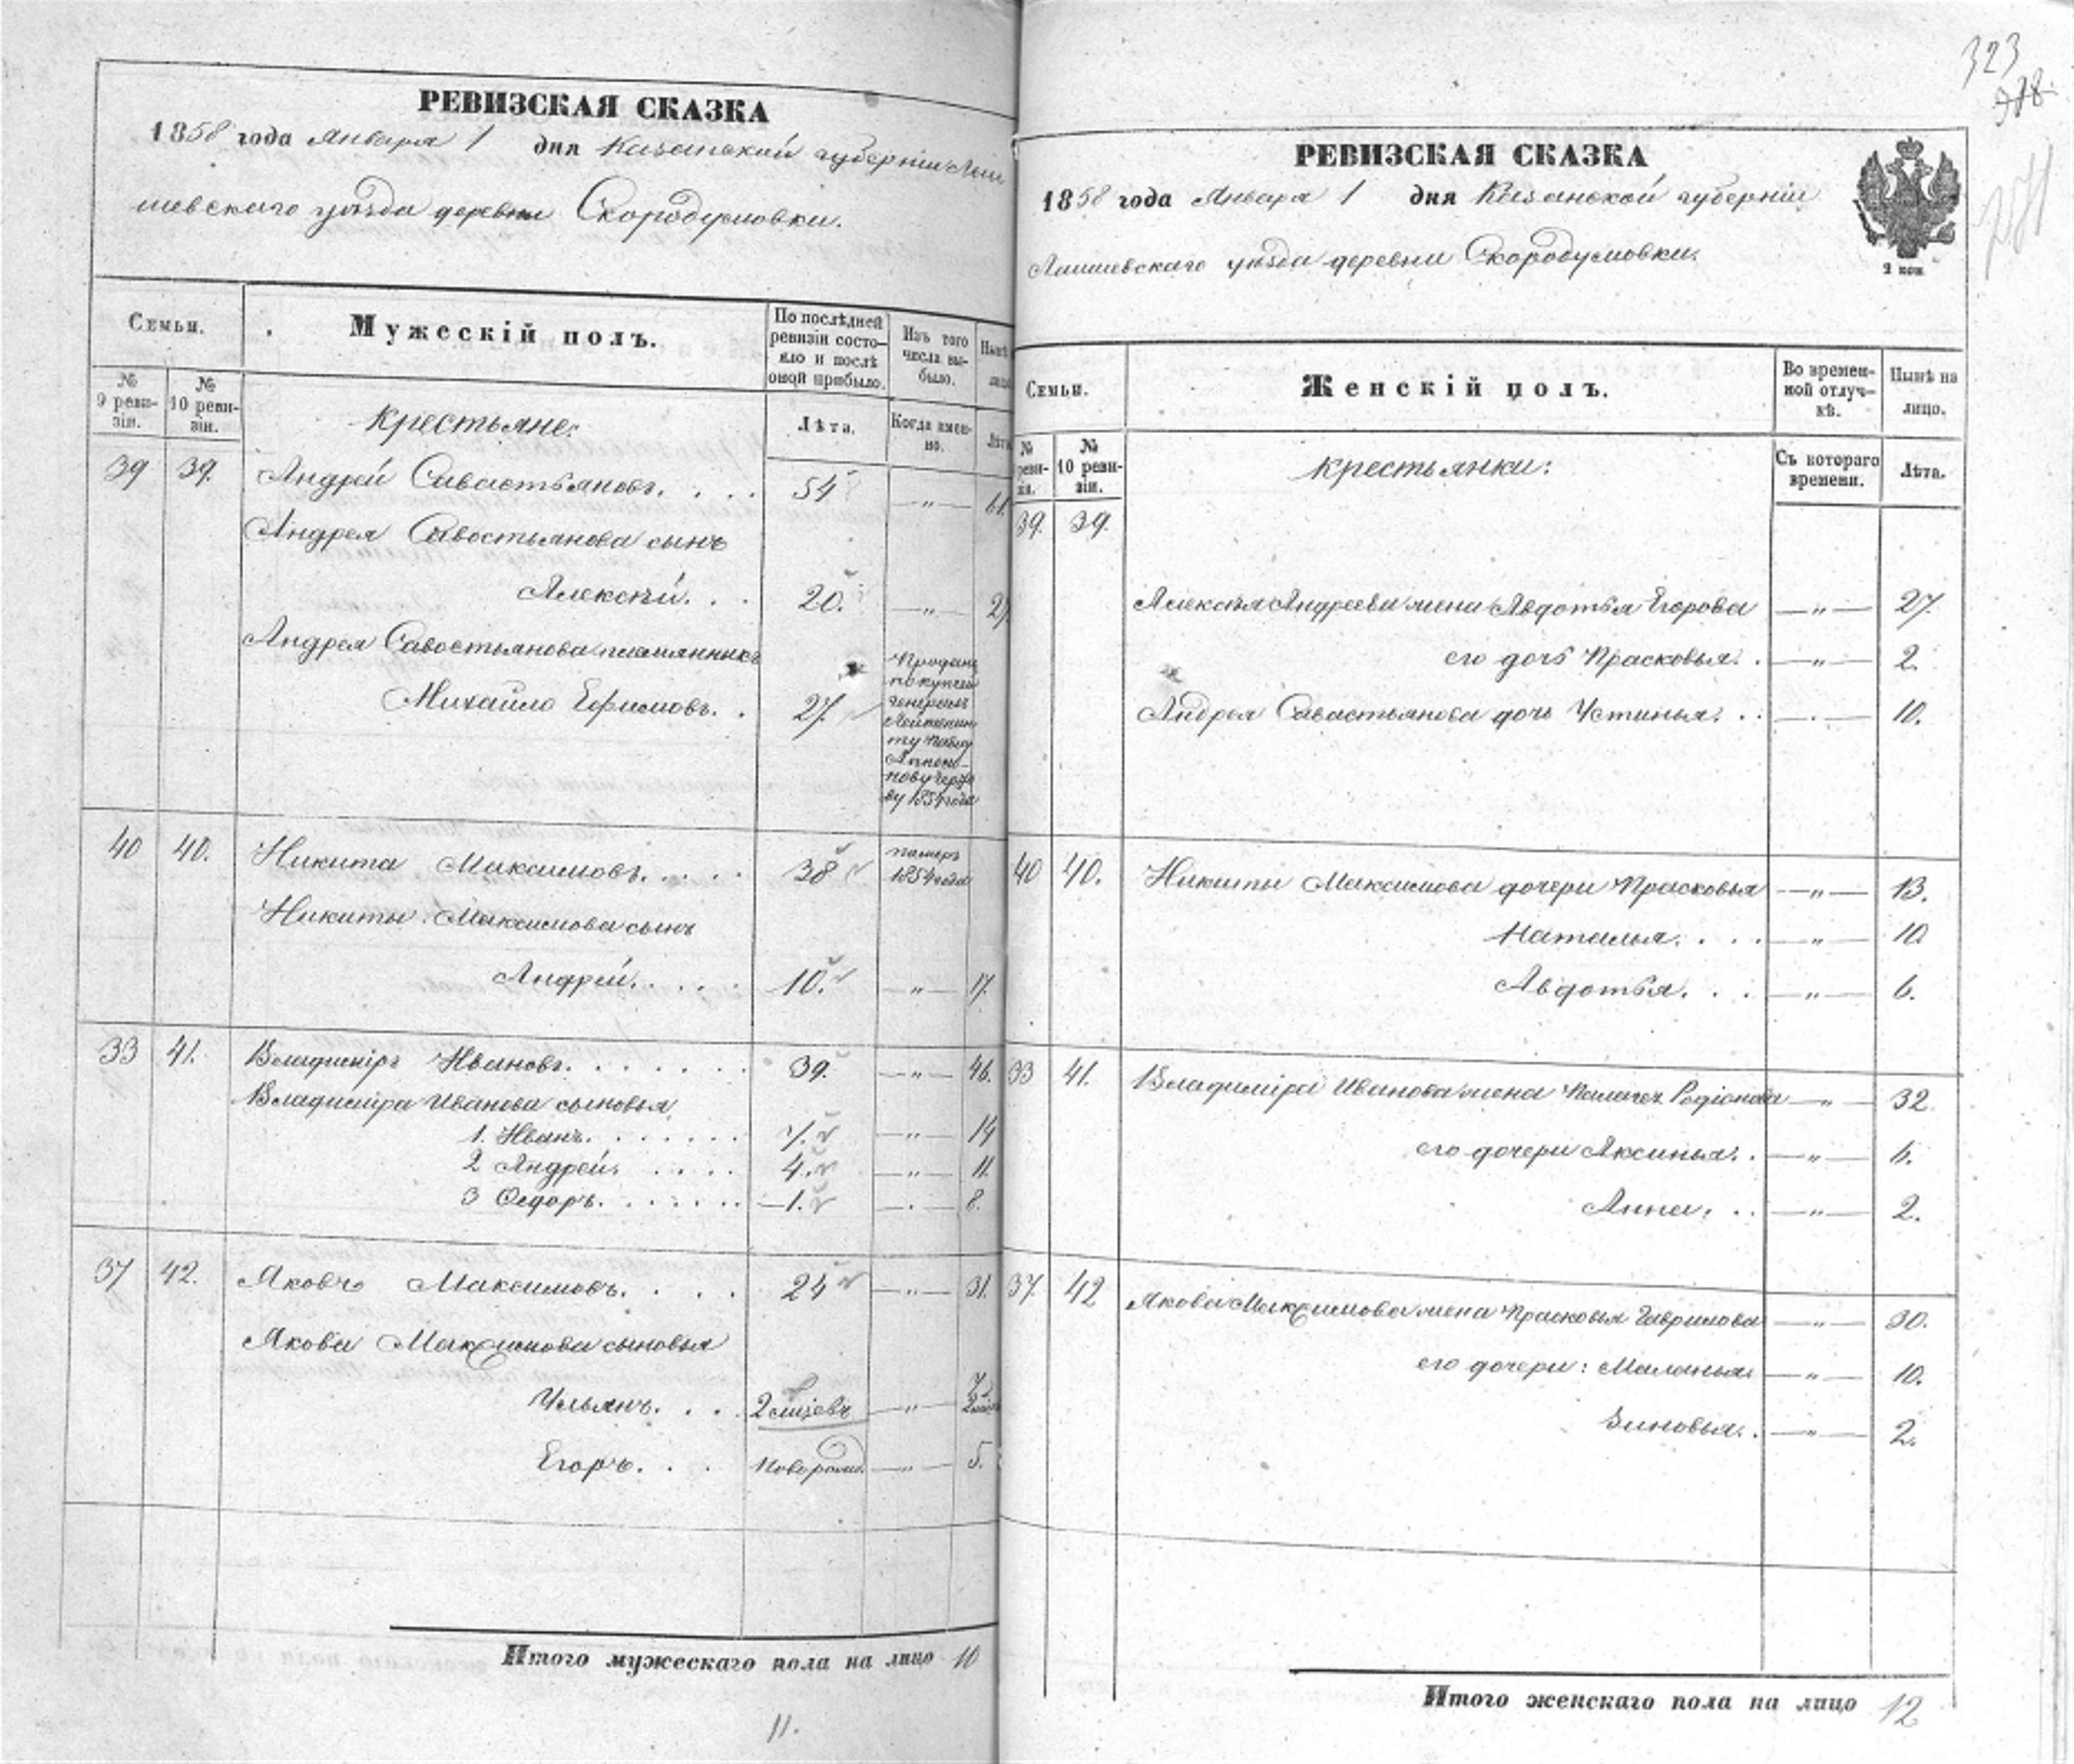 РЕВИЗСКАЯ СКАЗКА
1858 года Января 1 дня Казанской губернiи Лаи
шевскаго уѣзда деревни Скородумовки.
Семьи. Мужескiй полъ. По послѣдней ревизiи состояло и послѣ оной прибыло. Изъ того числа выбыло. Нынѣ
№ 9 ревизiи. № 10 ревизiи. Крестьяне: Лѣта. Когда именно. Лѣта
39 39. Андрей Савастьяновъ. 54 —„— 61.
Андрея Савостьянова сынъ
Алексѣй. 20. —„— 27.
Андрея Савостьянова племянникъ
Михайло Ефимовъ. 27.
Проданъ
по купчей
генералъ
Лейтенан
ту
Аполло-
нову
1854 года
40 40. Никита Максимовъ. 38 померъ 1854 года
Никиты Максимова сынъ
Андрей. 10. —„— 17.
33 41. Владимiръ Ивановъ. 39. —„— 46.
Владимiра Иванова сыновья
1. Иванъ. 7. —„— 14
2 Андрей. 4. —„— 11.
3 Ѳедоръ. —1. —„— 8.
37 42. Яковъ Максимовъ. 24 —„— 31.
Якова Максимова сыновья
Ульянъ. 2 мѣсяцевъ —„— 7
Егоръ. Новорожд. —„— 5.
Итого мужескаго пола на лицо 10
11.
323
318.
РЕВИЗСКАЯ СКАЗКА
1858 года Января 1 дня Казанской губернiи
Лаишевскаго уѣзда деревни Скородумовки.
2 коп
Семьи. Женскiй полъ. Во временной отлучкѣ. Нынѣ на лицо.
№ ревизiи. № 10 ревизiи. Крестьянки: Съ котораго времени. Лѣта.
39. 39.
Алексѣя Андреева жена Авдотья Егорова —„— 27.
его дочь Прасковья. —„— 2.
Андрея Савастьянова дочь Устинья. —„— 10.
40 40. Никиты Максимова дочери Прасковья —„— 13.
Наталья. —„— 10.
Авдотья. —„— 6.
33 41. Владимiра Иванова жена Палагея Родiонова —„— 32.
его дочери Аксинья. —„— 6.
Анна. —„— 2.
37. 42 Якова Максимова жена Прасковья Гаврилова —„— 30.
его дочери: Маланья —„— 10.
Зиновья. —„— 2.
Итого женскаго пола на лицо 12